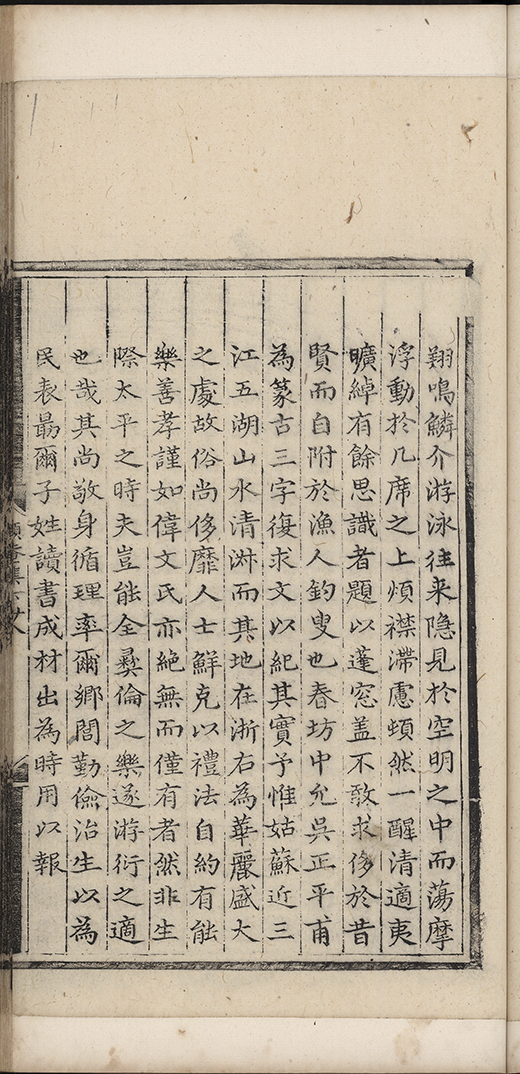 翔鳴鱗介游泳往来隐見於空明之中而蕩摩
浮動於几席之上煩襟滯慮頓然一醒清適夷
曠綽有餘思識者題以蓬窓盖不敢求侈於昔
賢而自附於漁人釣叟也春坊中允吳正平甫
為篆古三字復求文以紀其實予惟姑蘇近三
江五湖山水清淋而其地在浙右為華麗盛大
之處故俗尚侈靡人士鮮克以禮法自約有能
樂善孝謹如偉文氏亦絶無而僅有者然非生
際太平之時夫豈能全彞倫之樂遂游衍之適
也哉其尚敬身循理率爾鄉閭勤儉治生以為
民表勗爾子姓讀書成材出為時用以報